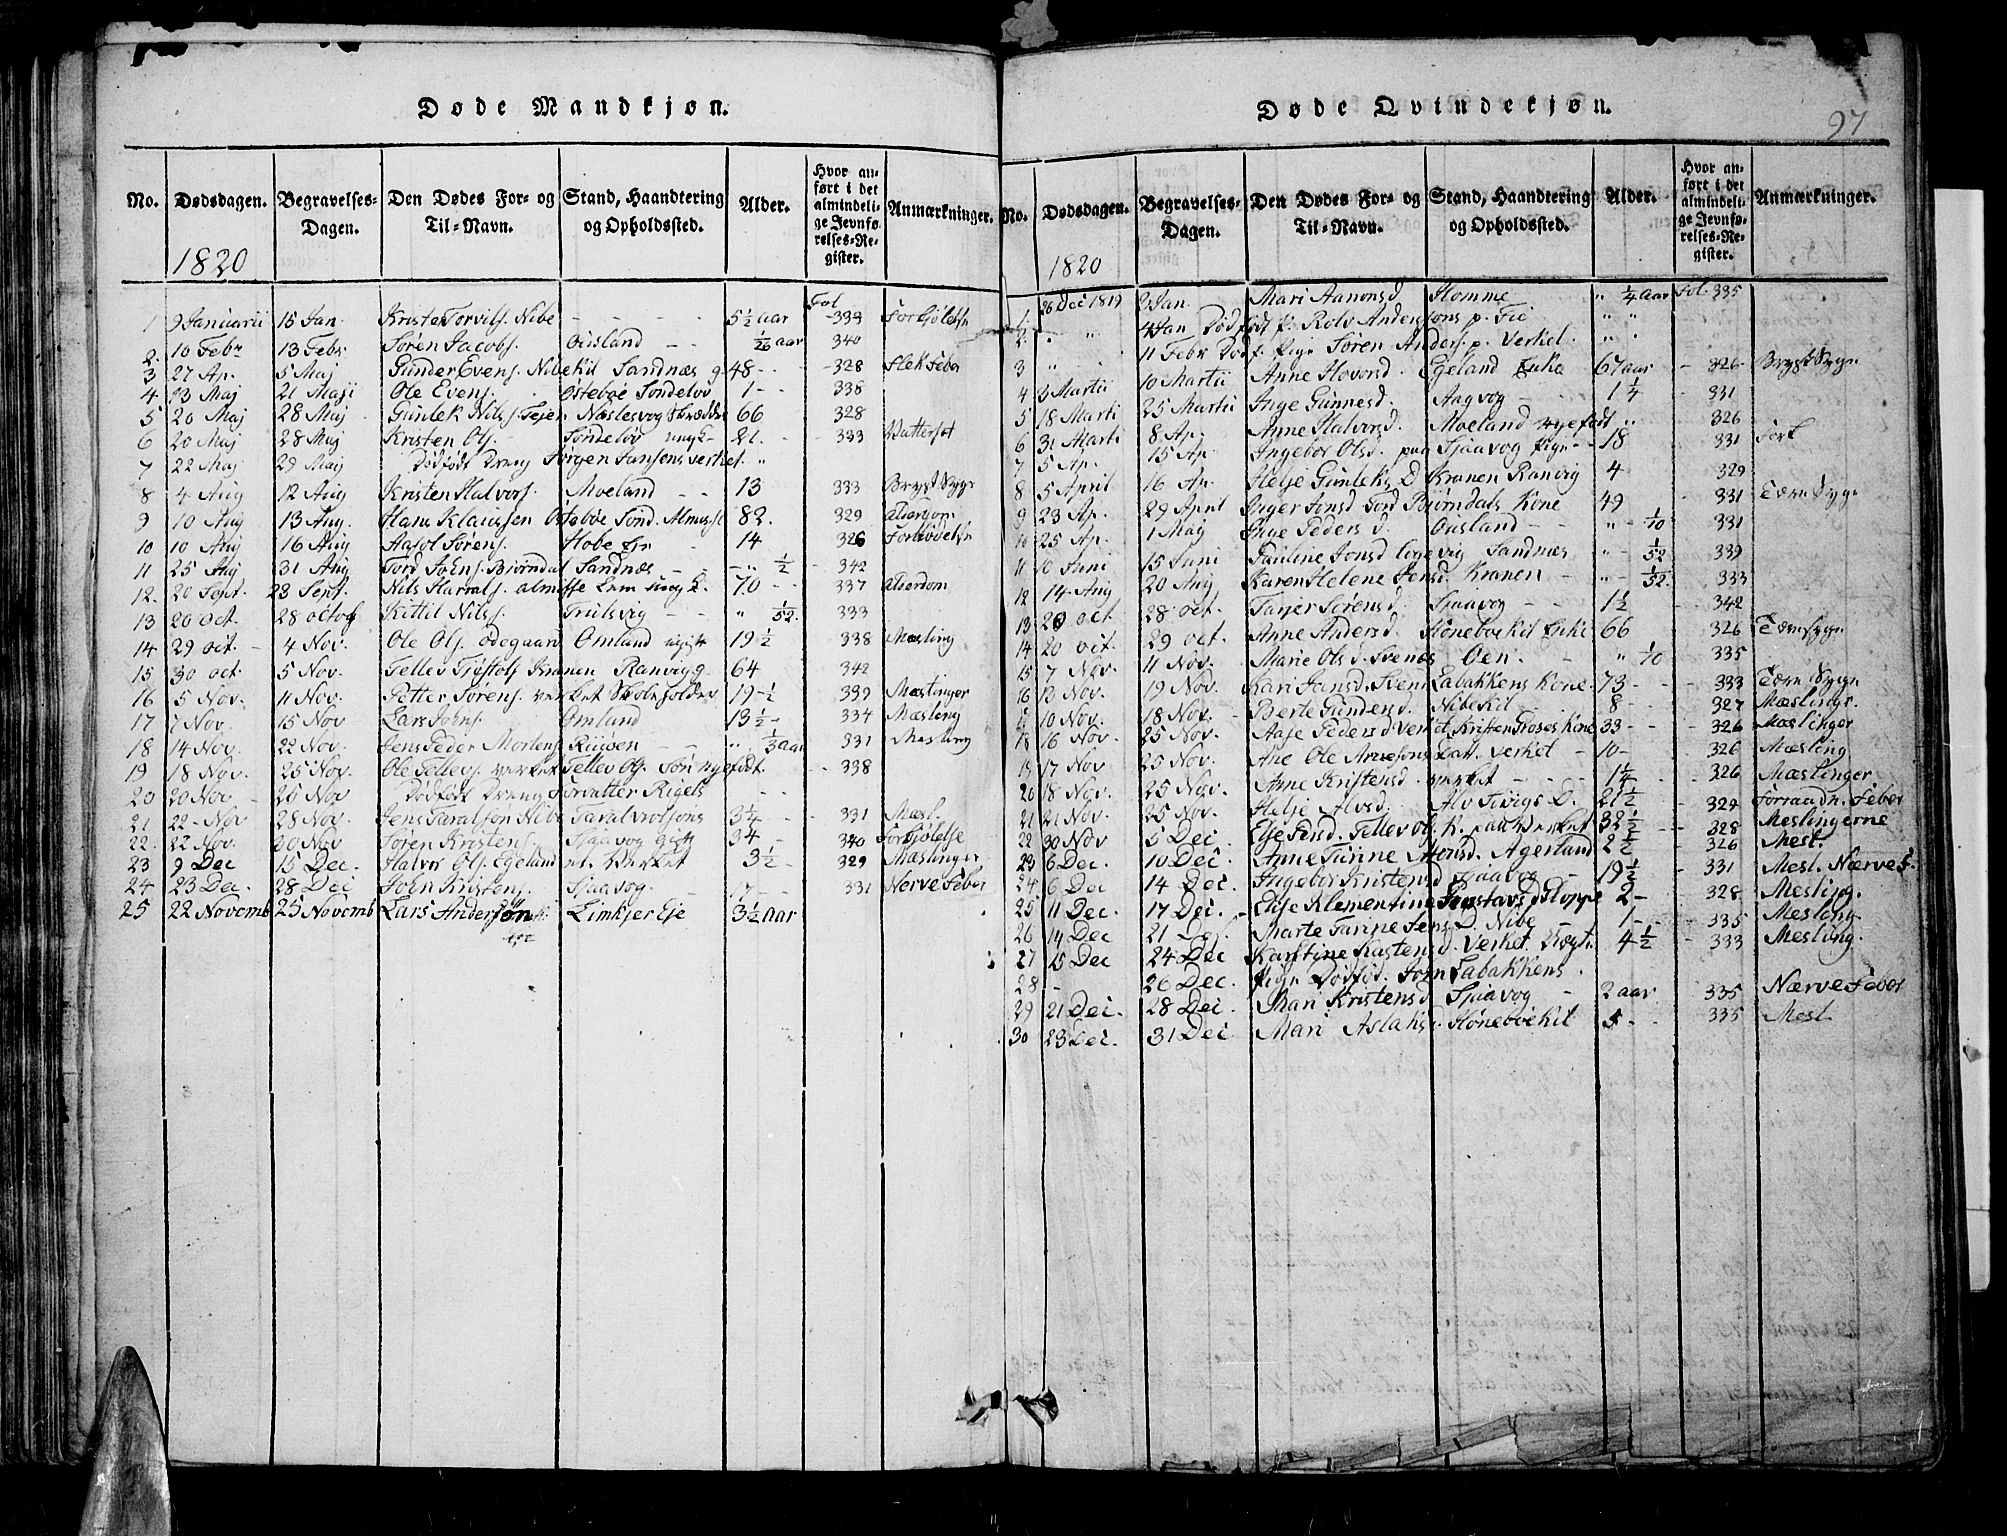 Døde Mandkjøn.
No. Dødsdagen. Begravelses-Dagen. Den Dødes For- og Til-Navn. Stand, Haandtering og Opholdssted. Alder. Hvor anført i det almindelige Jevnførelses-Register. Anmærkninger.
1820
Fol
1 9 Januarii 15 Jan. Kristen Torvils. Nibe 5½ aar 334
2. 10 Febr 13 Febr Søren Jacobs. Ousland 1/26 aar 340
3 27 Ap. 5 Maj Gunder Evens. Nibekil Sandnæs 48 328
4 13 Maj 21 Maji Ole Evens. Østebøe Søndeløv 1 338
5 20 Maj 28 Maj Gunlek Nils. Næslesvog 66 328
6 20 Maj 28 Maj Kristen Ols. Søndeløv 21. 333
7 22 Maj 29 Maj Dødfødt Dreng Jørgen Jansens verket
8 4 Aug 12 Aug Kristen Halvors. Moeland 13 333 BrystSyge
9 10 Aug 13 Aug. Hans Klaussen Østebøe Sønd. 82. 329 alderdom
10 10 Aug 16 Aug Aasol Sørens. Hobe 14 326
11 25 Aug 31 Aug Tord Johns. Biørndal Sandnæs ½ 342
12. 20 Sept. 23 Sept. Nils Harals. 70 337 alderdom
13 20 oct. 28 octob Kittil Nils. Trulsvig 1/52. 333
14 29 oct. 4 Nov. Ole Ols. ødegaard Omland ugift 19½ 338 Mæsling
15 30 oct. 5 Nov. Tellev Tjøstols Kranen Ranvigg 64 342
16 5 Nov. 11 Nov. Petter Sørens. verket Skoleholder 19½ 339 Mæslinger
17 7 Nov. 15 Nov Lars Johns. Omland 13½ 334 Mæsling
18 14 Nov. 22 Nov. Jens Peder Mortens. Riisøen ⅓ aar 331 Mesling
19 18 Nov. 25 Nov. Ole Tellevs. verket Tellev Ols. Søn nyefødt. 338
20 20 Nov 25 Nov Dødfødt Dreng Torvatter Rigels
21 22 Nov 28 Nov. Jens Taralsson Nibe Taral Trolsons 3¼ 331 Mæsl.
22. 22 Nov. 30 Nov Søren Kristens. Sjaavog gift 34 340 Forkjølelse
23 9 Dec 15 Dec. Halvor Ols. Egeland verket 3½ 329 Mæslinger
24 23 Dec. 28 Dec John Kristens. Sjaavog. 17 331 Nerve Feber
25 22 Novemb 25 Novemb Lars Anderson Limkjer Eje 3½ aar
Døde Qvindekjøn.
97
No. Dødsdagen. Begravelses-Dagen. Den Dødes For- og Til-Navn. Stand, Haandtering og Opholdssted. Alder. Hvor anført i det almindelige Jevnførelses-Register. Anmærkninger.
1820
1. 26 Dec 1819 2 Jan. Mari Aanonsd Homme ¼ aar Fol. 335
2. 4 Jan Dødfødt P. Rolv Anderssons p. Fie
3 11 Febr Dødf. Pige Søren Anders. p. Verket.
4 3 Martii 10 Martii Anne Hovorsd. Egeland Enke 67 aar 326 BrystSyge
5 18 Marti 25 Martii Inge Gunnesd. Aagvog 1¼ 331
6 31 Marti 8 Ap. Anne Halvorsd. Moeland nyefødt 326
7 5 Ap. 15 Ap Ingebor Olsd. Sjaavog Pige 18 331
8 5 April 16 Ap. Helje Gunleks D Kranen Ranvig 4 329
9 23 Ap. 29 April Inger Jonsd Tord Biørndals Kone 49 331 Tærre Syge
10 25 Ap. 1 Maj Inge Peders d. Ousland 1/10 331
11 10 Juni 15 Juni Pauline Jonsd Sandnæs 1/52 339
12 14 Aug 20 Aug Karen Helene Jensd. Kranen 1/52. 333
13 20 oct. 28 oct. Tarjer Sørensd. Sjaavog 1½ 342
14 20 oct. 29 oct. Anne Andersd. Hønebøekil Enke 66 326 Tærresyge
15 7 Nov. 11 Nov. Marie Olsd. Svenæs Øen. 1/10 335
16 12 Nov. 19 Nov. Kari Jansd. Sven Labakkens Kone. 73 333 Tære Syge
17 10 Nov. 18 Nov. Berte Gundersd. Nibekil 8 327 Mæslinge
18 16 Nov. 25 Nov. Aaje Pedersd verket Kristen Foses Kone 33 326 Mæslinger
19 17 Nov 25 Nov. Ane Ole Arnesons Datt. Verket 10 326 Mæsling
20 18 Nov. 25 Nov. Anne Kristensd. verket 1¼ 326 Mæslinger
21 21 Nov. 25 Nov. Helje Alvsd. Alv 21½ 329 Forraadn. Feber
22 30 Nov 5 Dec Elje Tellev Ols. K. paa Verket 32½ 328 Meslingerne
23 6 Dec. 10 Dec. Anne Turine Agerland 2½ 326 Mesl.
24 6 Dec 14 Dec. Ingebor Kristensd Sjaavog 19½ 331 Mesl. NærveF.
25 11 Dec. 17 Dec. Elije Klementine Gustavsd Kloppe 2 328 Mesling.
26 14 Dec 21 Dec Marte Tarine Jens D. Nibe 1 335 Mesling
27 15 Dec 24 Dec Karstine Kastensd. Verket. 4½ 333 Mesling.
28 26 Dec. Pige Dødfød. John Labakkens.
29 21 Dec. 28 Dec. Mari Kristensd Sjaavog 2 aar 335 Nærve Feber
30 23 Dec. 31 Dec Mari Aslaks. Hønebøekil 5 335 Mesl.